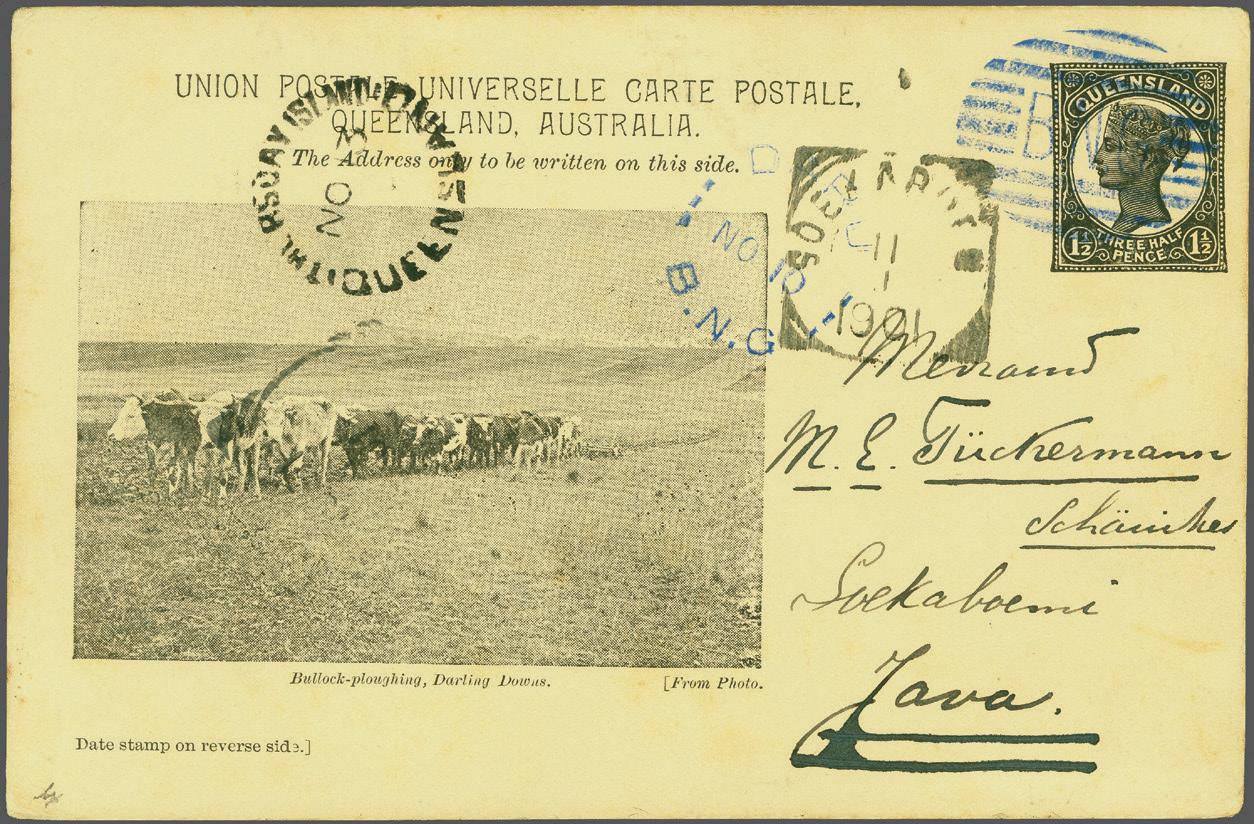 UNION POSTALE UNIVERSELLE CARTE POSTALE,
QUEENSLAND, AUSTRALIA.
The Address only to be written on this side.
QUEENSLAND
THREE HALF
PENCE
1½ 1½
THURSDAY ISLAND
QUEENSLAND
NO
DARU
NO 10
B.N.G
B
N
G
SOEKABOEMI
11
1
1901
M. E. Tückermann
Soekaboemi
Java.
Bullock-ploughing, Darling Downs.
[From Photo.
Date stamp on reverse side.]